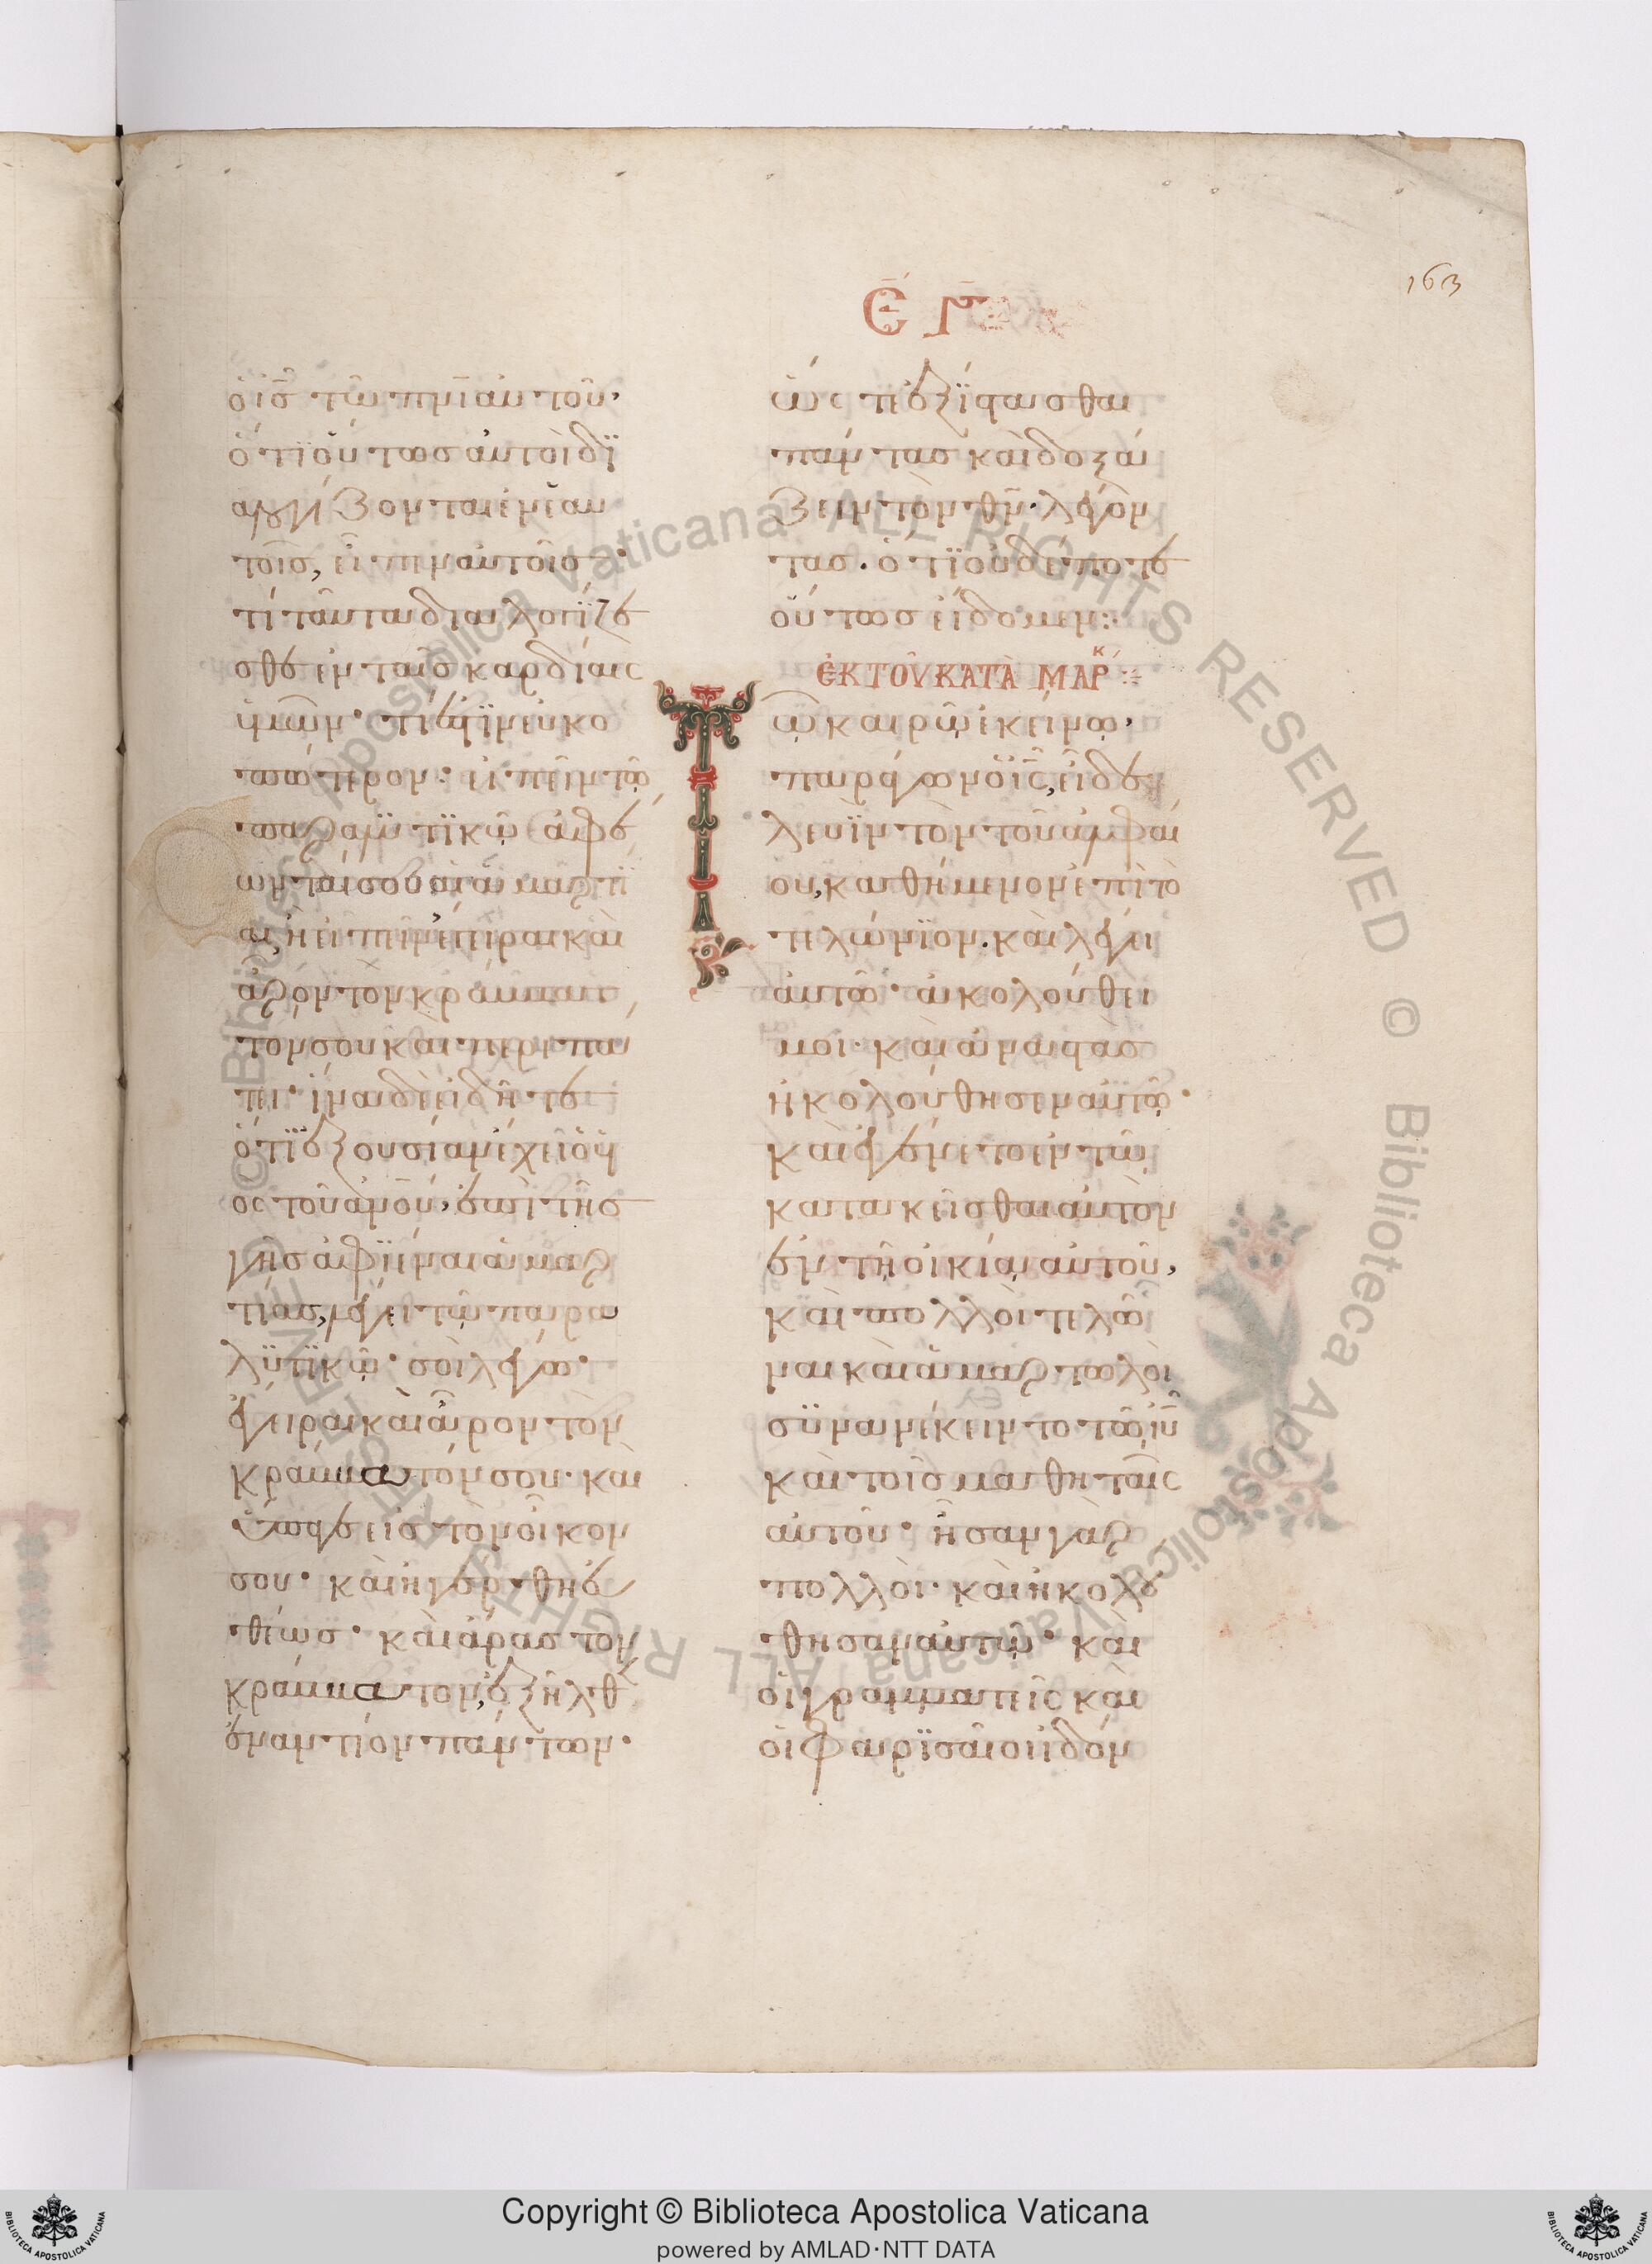 163
ὁ ἰ̅ς̅ τῶ π̅ν̅ι αὐτοῦ,
ὅτι οὕτως αὐτοὶ δι
αλογίζονται ἐν ἑαυ
τοῖς, εἶπεν αὐτοῖς·
τί ταῦτα διαλογίζε
σθε ἐν ταῖς καρδίαις
ὑμῶν· τί ἐστιν εὐκο
πώτερον· εἰπεῖν τῷ
παραλυτικῷ ἀφέ
ωνταί σου αἱ ἁμαρτί
αι, ἢ εἰπεῖν ἔγειραι καὶ
ἆρον τὸν κράββατ
τόν σου καὶ περιπά
τει· ἵνα δὲ εἰδῆτε
ὅτι ἐξουσίαν ἔχει ὁ υἱ
ος τοῦ ἀνοῦ, ἐπὶ τῆς
γῆς ἀφιέναι ἁμαρ
τίας, λέγει τῷ παρα
λυτικῷ· σοὶ λέγω·
ἔγειραι καὶ ἆρον τὸν
κράββατόν σου· καὶ
ὕπαγε εἰς τὸν οἶκον
σου· καὶ ἠγέρθη εὐ
θέως· καὶ ἄρας τὸν
κράββατον, ἐξῆλθεν
ἐναντίον πάντων·
ὥς τε ἐξίστασθαι
πάντας καὶ δοξά
ζειν τὸν θ̅ν̅· λέγον
τας· ὅτι οὐδέποτε
οὕτως εἴδομεν:
ἐκ τοῦ κατὰ Μάρκ
Τῶ καιρῶ ἐκείνω,
παράγων ὁ ἰ̅ς̅, εἶδε
λευϊν τὸν τοῦ ἀλφαί
ου, καθήμενον ἐπὶ τὸ
τελώνιον· καὶ λέγει
αὐτῶ· ἀκολούθει
μοι· καὶ ἀναστὰς
ἠκολούθησεν αὐτῷ·
καὶ ἐγένετο ἐν τῶ
κατακεῖσθαι αὐτὸν
ἐν τῇ οἰκίᾳ αὐτοῦ,
καὶ πολλοὶ τελῶ
ναι καὶ ἁμαρτωλοὶ
συνανέκειντο τῶ ἰ̅υ̅
καὶ τοῖς μαθηταῖς
αὐτοῦ· ἦσαν γὰρ
πολλοὶ· καὶ ἠκολού
θησαν αὐτῷ· καὶ
οἱ γραμματεῖς καὶ
οἱ φαρισαῖοι ἰδόν
Copyright © Biblioteca Apostolica Vaticana
powered by AMLAD·NTT DATA